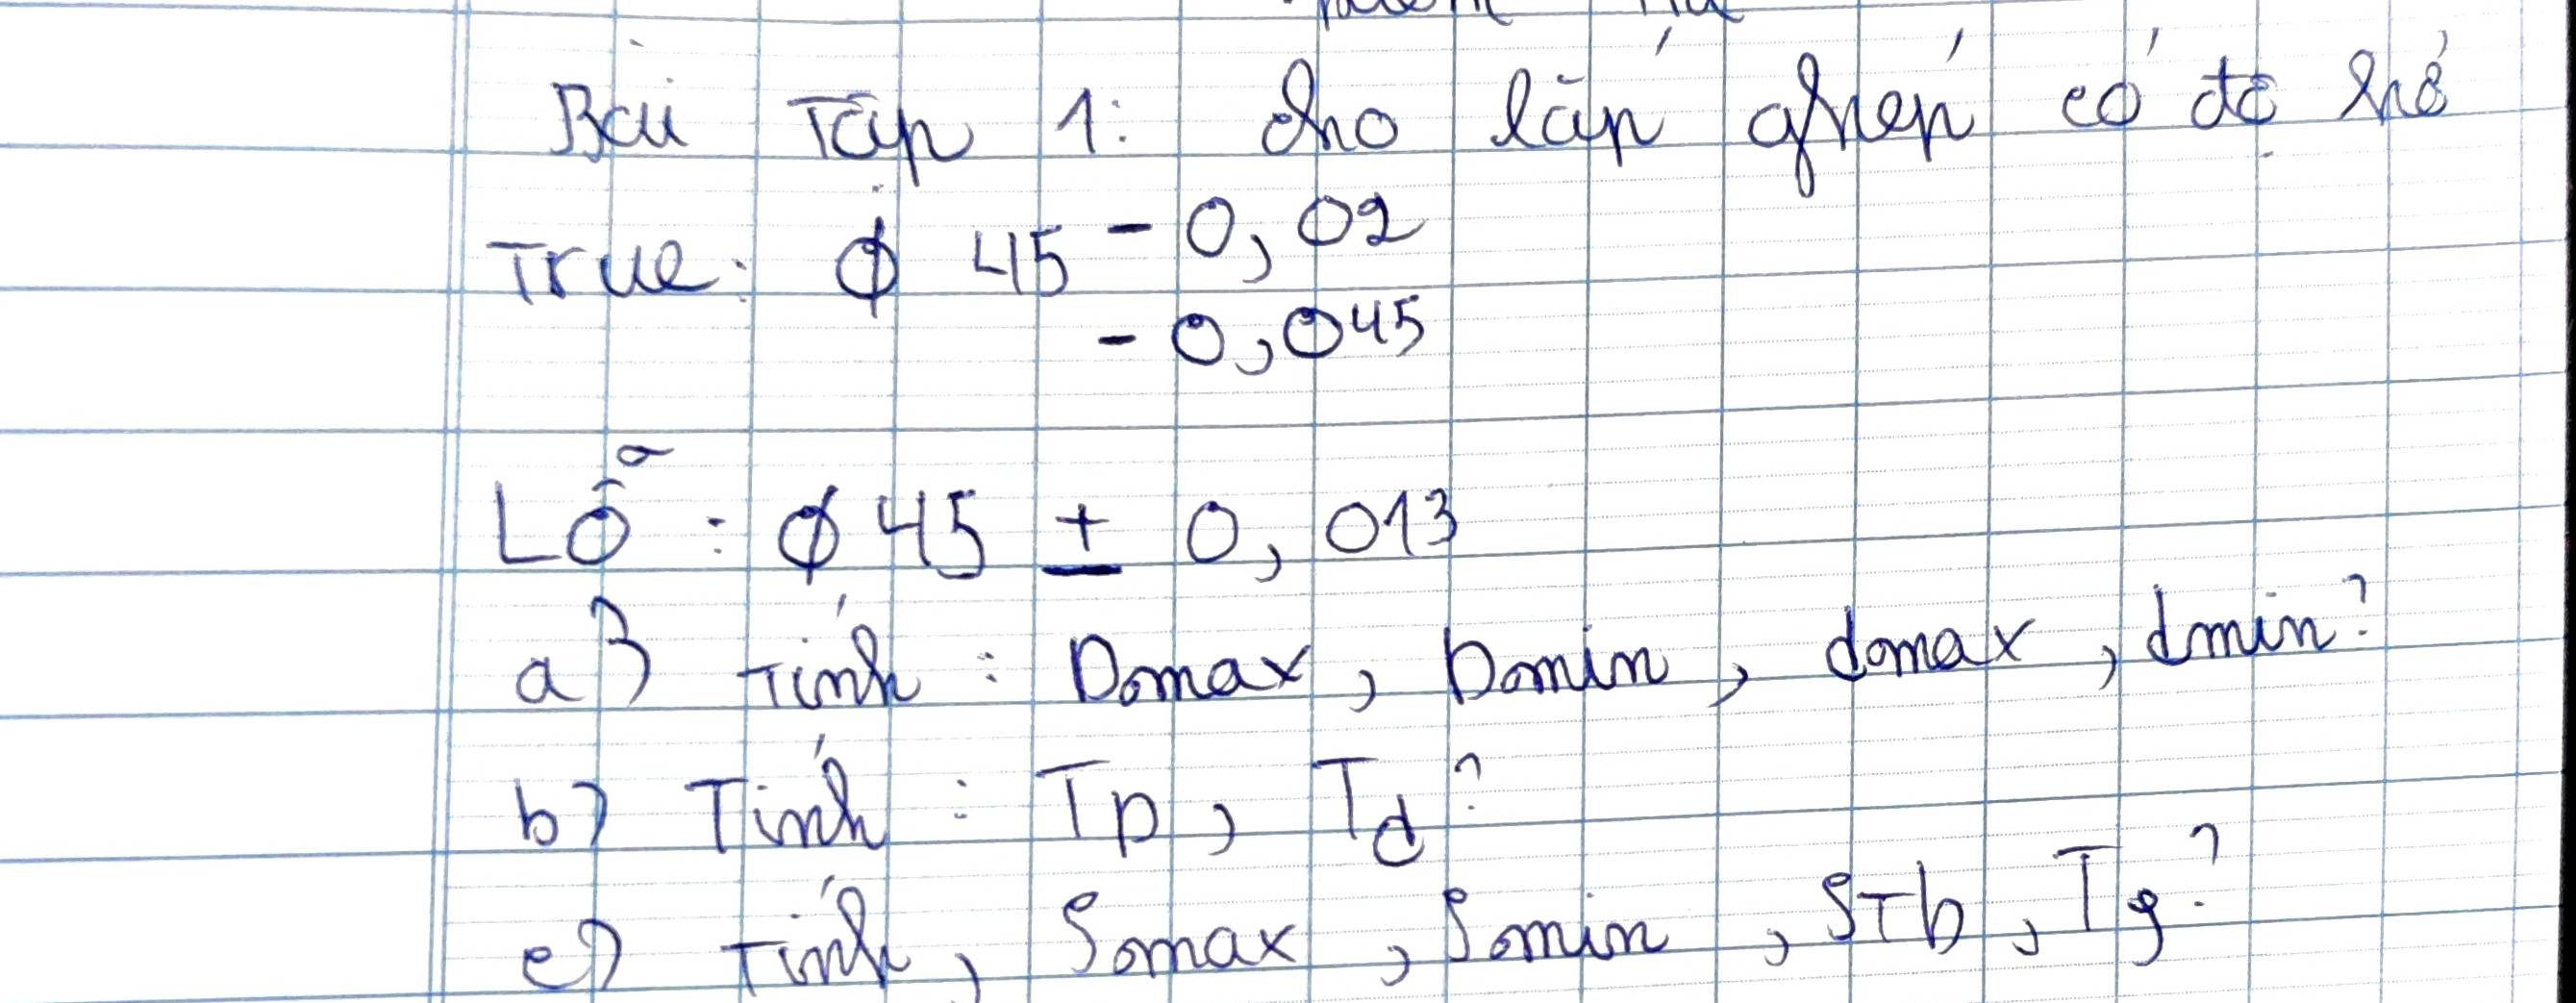 Bài Tập 1: cho lắp ghép có độ hở
Trục: ϕ 45 - 0,02
- 0,045
Lỗ : ϕ 45 ± 0,013
a) Tính : Dmax, Dmin, dmax, dmin?
b) Tính : TD, Td?
c) Tính, Smax, Smin, STb, Tg?